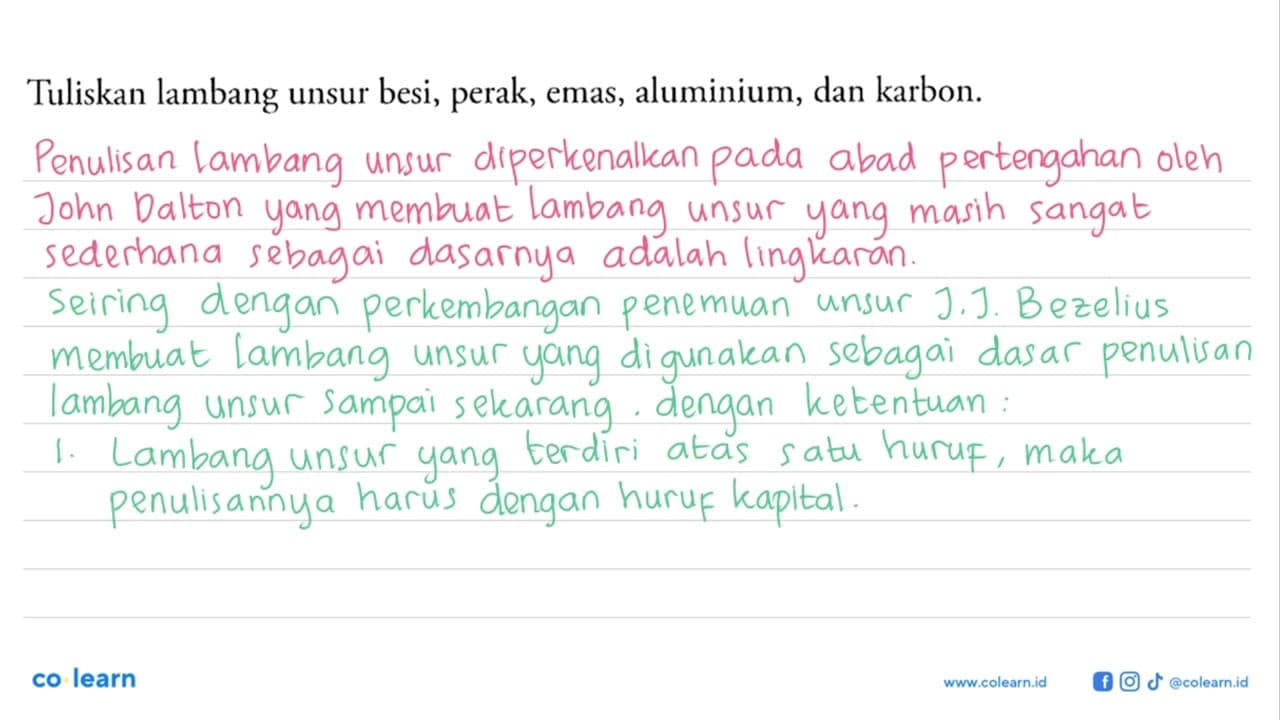 Tuliskan lambang unsur besi, perak, emas, aluminium, dan karbon.
Penulisan lambang unsur diperkenalkan pada abad pertengahan oleh
John Dalton yang membuat lambang unsur yang masih sangat
sederhana sebagai dasarnya adalah lingkaran.
Seiring dengan perkembangan penemuan unsur J.J. Bezelius
membuat lambang unsur yang digunakan sebagai dasar penulisan
lambang unsur sampai sekarang. dengan ketentuan :
1. Lambang unsur yang terdiri atas satu huruf, maka
penulisannya harus dengan huruf kapital.
co learn
www.colearn.id
@colearn.id